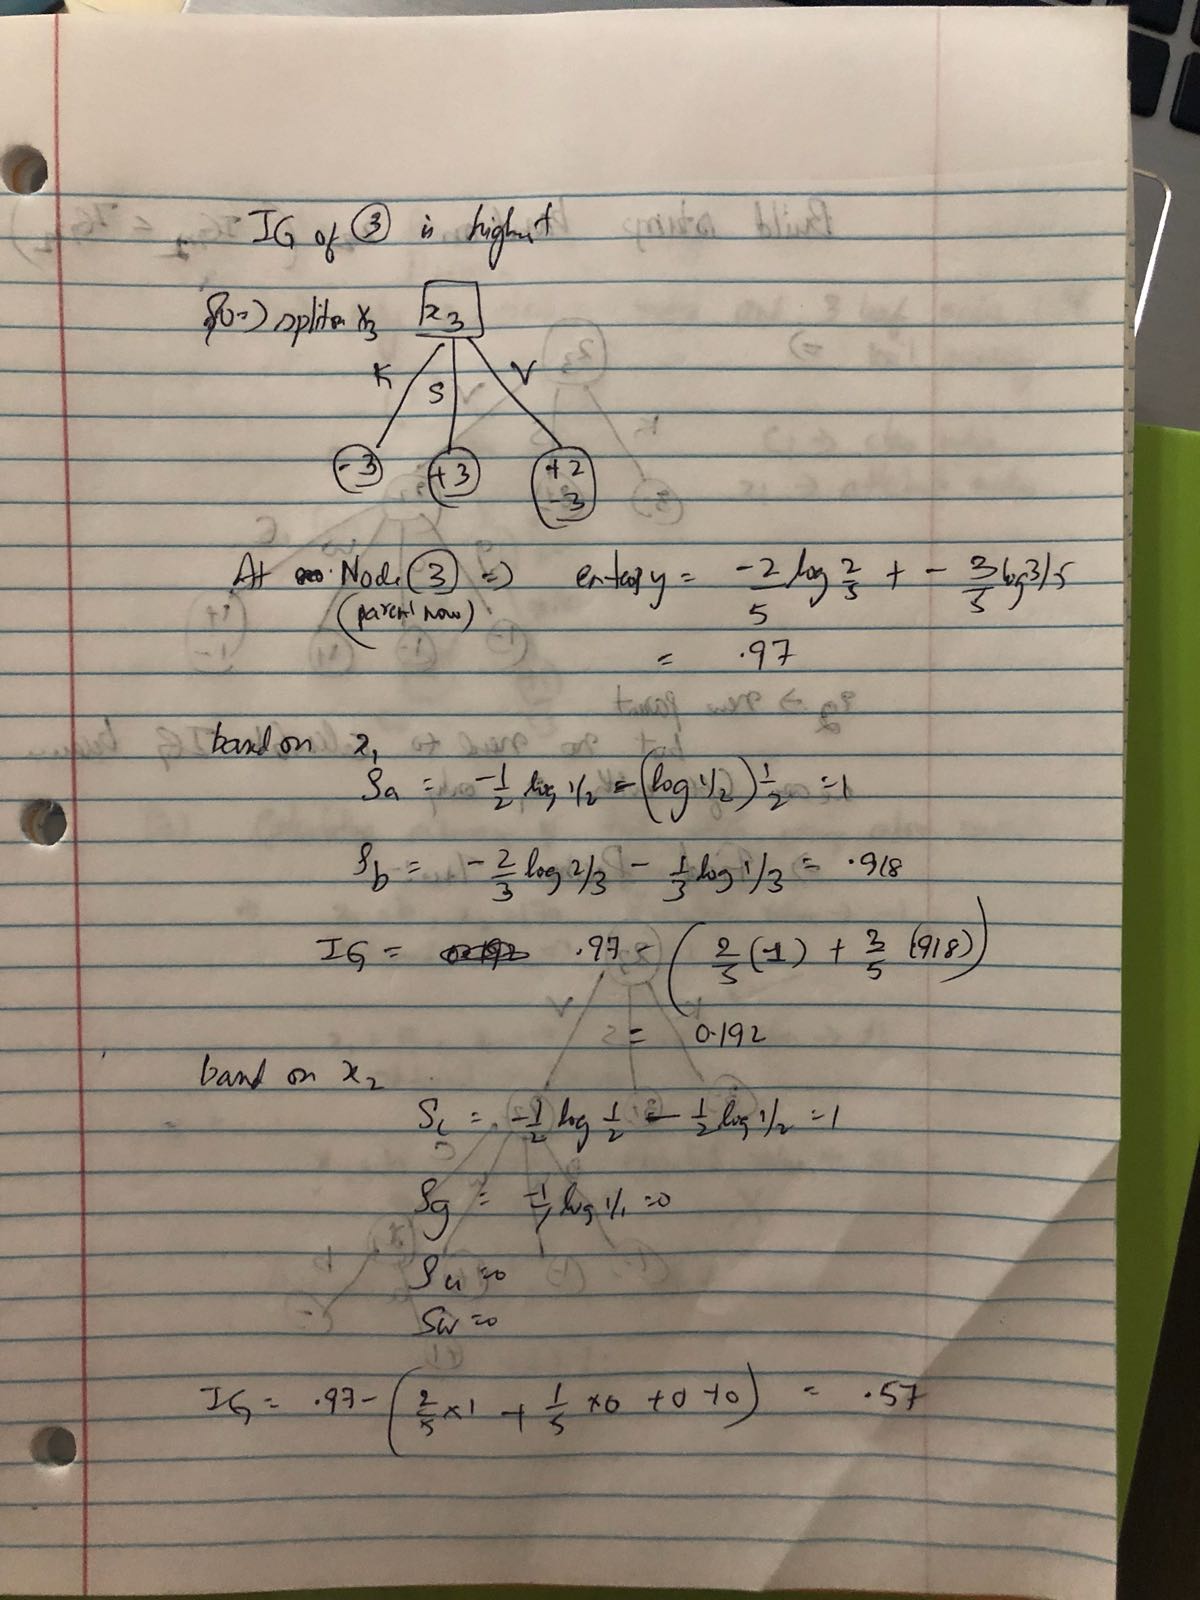 IG of ③ is highest
=> split on x3 x3
K S V
-3 +3 +2
-3
At Node ③ => entropy = -2/5 log 2/5 + - 3/5 log 3/5
(parent now)
= .97
based on x1
Sa = -1/2 log 1/2 - (log 1/2) 1/2 = 1
Sb = - 2/3 log 2/3 - 1/3 log 1/3 = .918
IG = .97 - ( 2/5 (1) + 3/5 (918) )
= 0.192
based on x2
Sc = -1/2 log 1/2 - 1/2 log 1/2 = 1
Sg = -1/1 log 1/1 = 0
Su = 0
Sw = 0
IG = .97 - ( 2/5 x 1 + 1/5 x 0 + 0 + 0 ) = .57